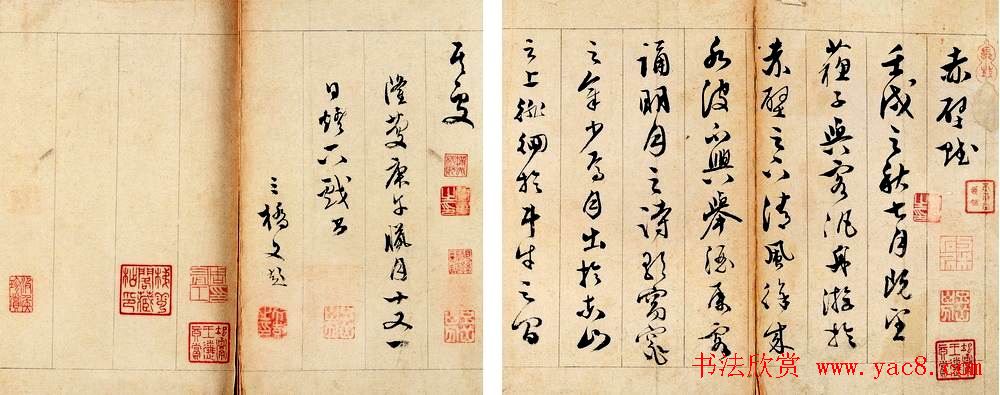 赤壁賦
壬戌之秋七月既望
蘇子與客泛舟游於
赤壁之下清風徐來
水波不興舉酒屬客
誦明月之詩歌窈窕
之章少焉月出於東山
之上徘徊於斗牛之間
隆慶庚午臘月十又一
日燈下戲書
三橋文彭
书法欣赏 www.yac8.com